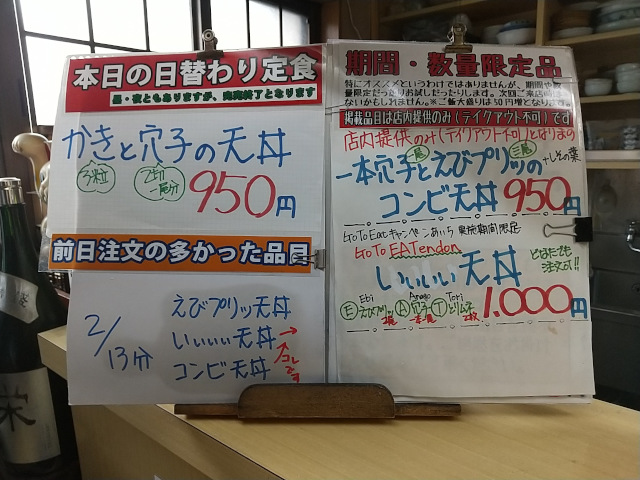 本日の日替わり定食
昼・夜ともありますが、完売終了となります
かきと穴子の天丼
3粒
950円
前日注文の多かった品目
2/13分
えびプリッ天丼
いいいい天丼→
コンビ天丼
↑コレです
期間・数量限定品
特にオススメというわけではありませんが、期間や数
量限定だったりお試しだったりします。次回ご来店の
ないかもしれません。※ご飯大盛りは50円増となりま
掲載品目は店内提供のみ(テイクアウト不可)です
店内提供のみ(テイクアウト不可)となりまの
一本穴子とえびプリッの
一尾 三尾
+しその葉
コンビ天丼950円
GoTo Eatキャンペーンあいち 実施期間限定
GoTo EATendon
いいいい天丼
どなたでも
注文可!!
Ebi Anago Tori
Ⓔえびプリッ Ⓐ穴子一本 Ⓣとりムネ2枚
1.000円
栄